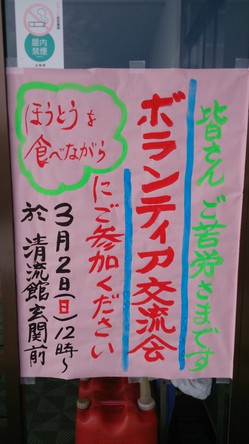 屋内
禁煙
皆さん ご苦労さまです
ボランティア交流会
にご参加ください
ほうとうを
食べながら
3月2日(日)12時〜
於 清流館玄関前